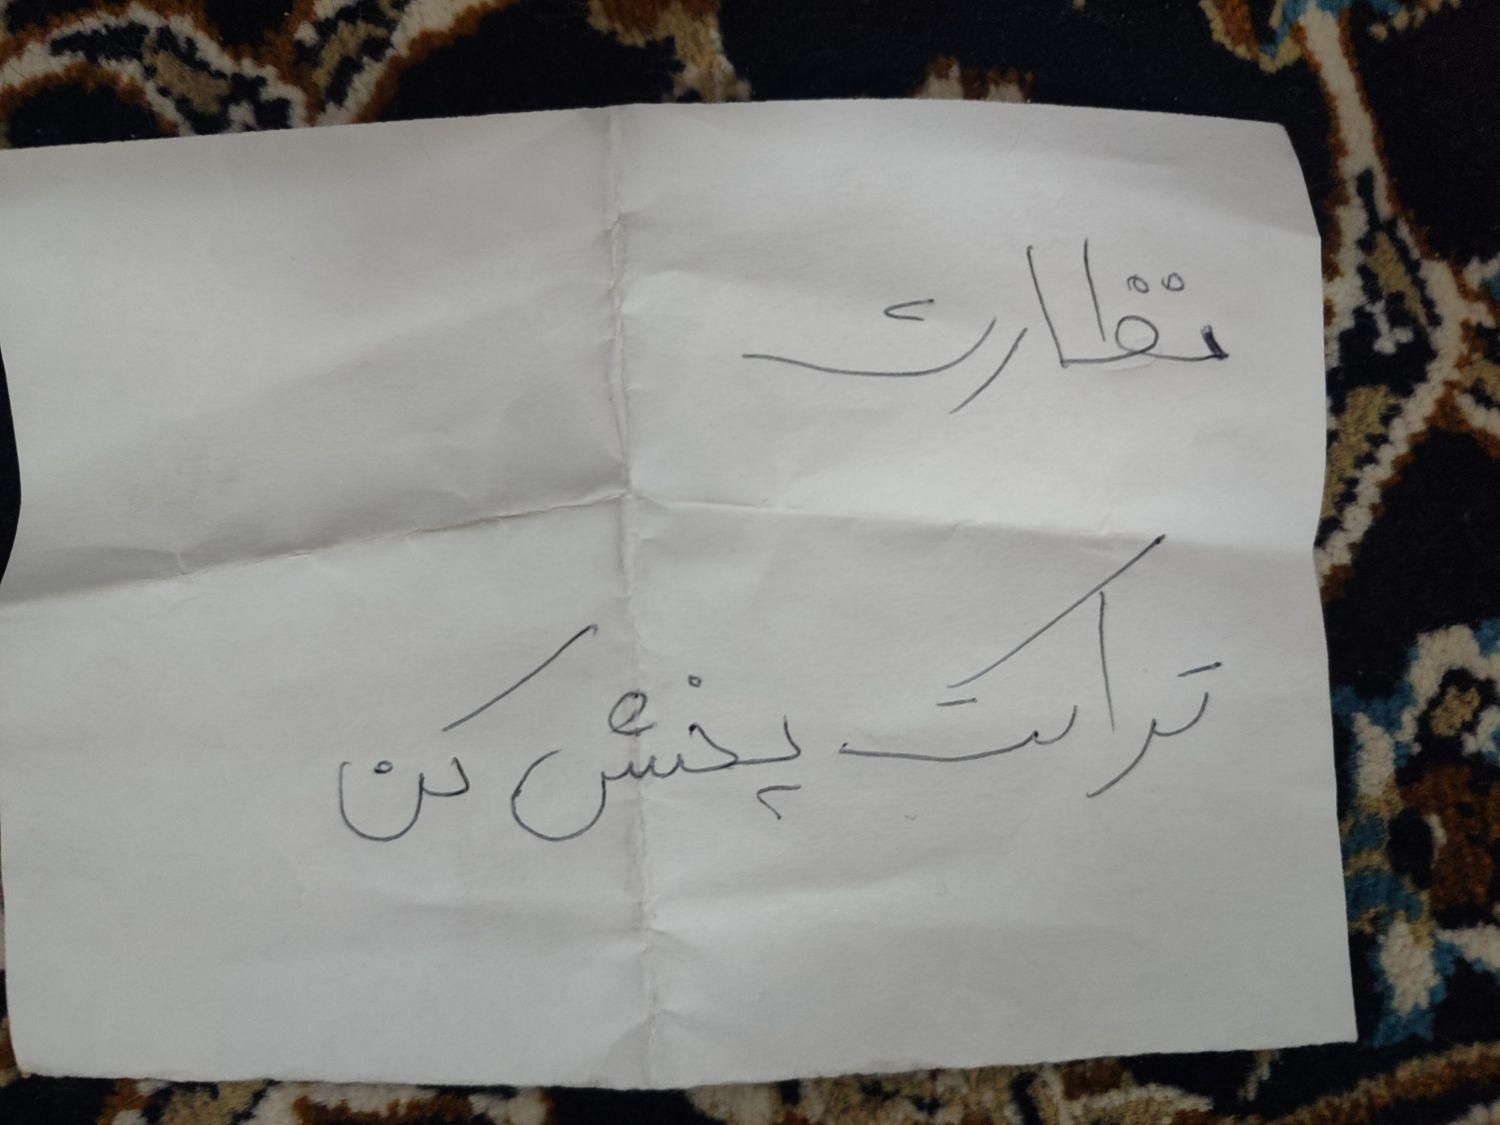 نظارت
تراکت پخش کن